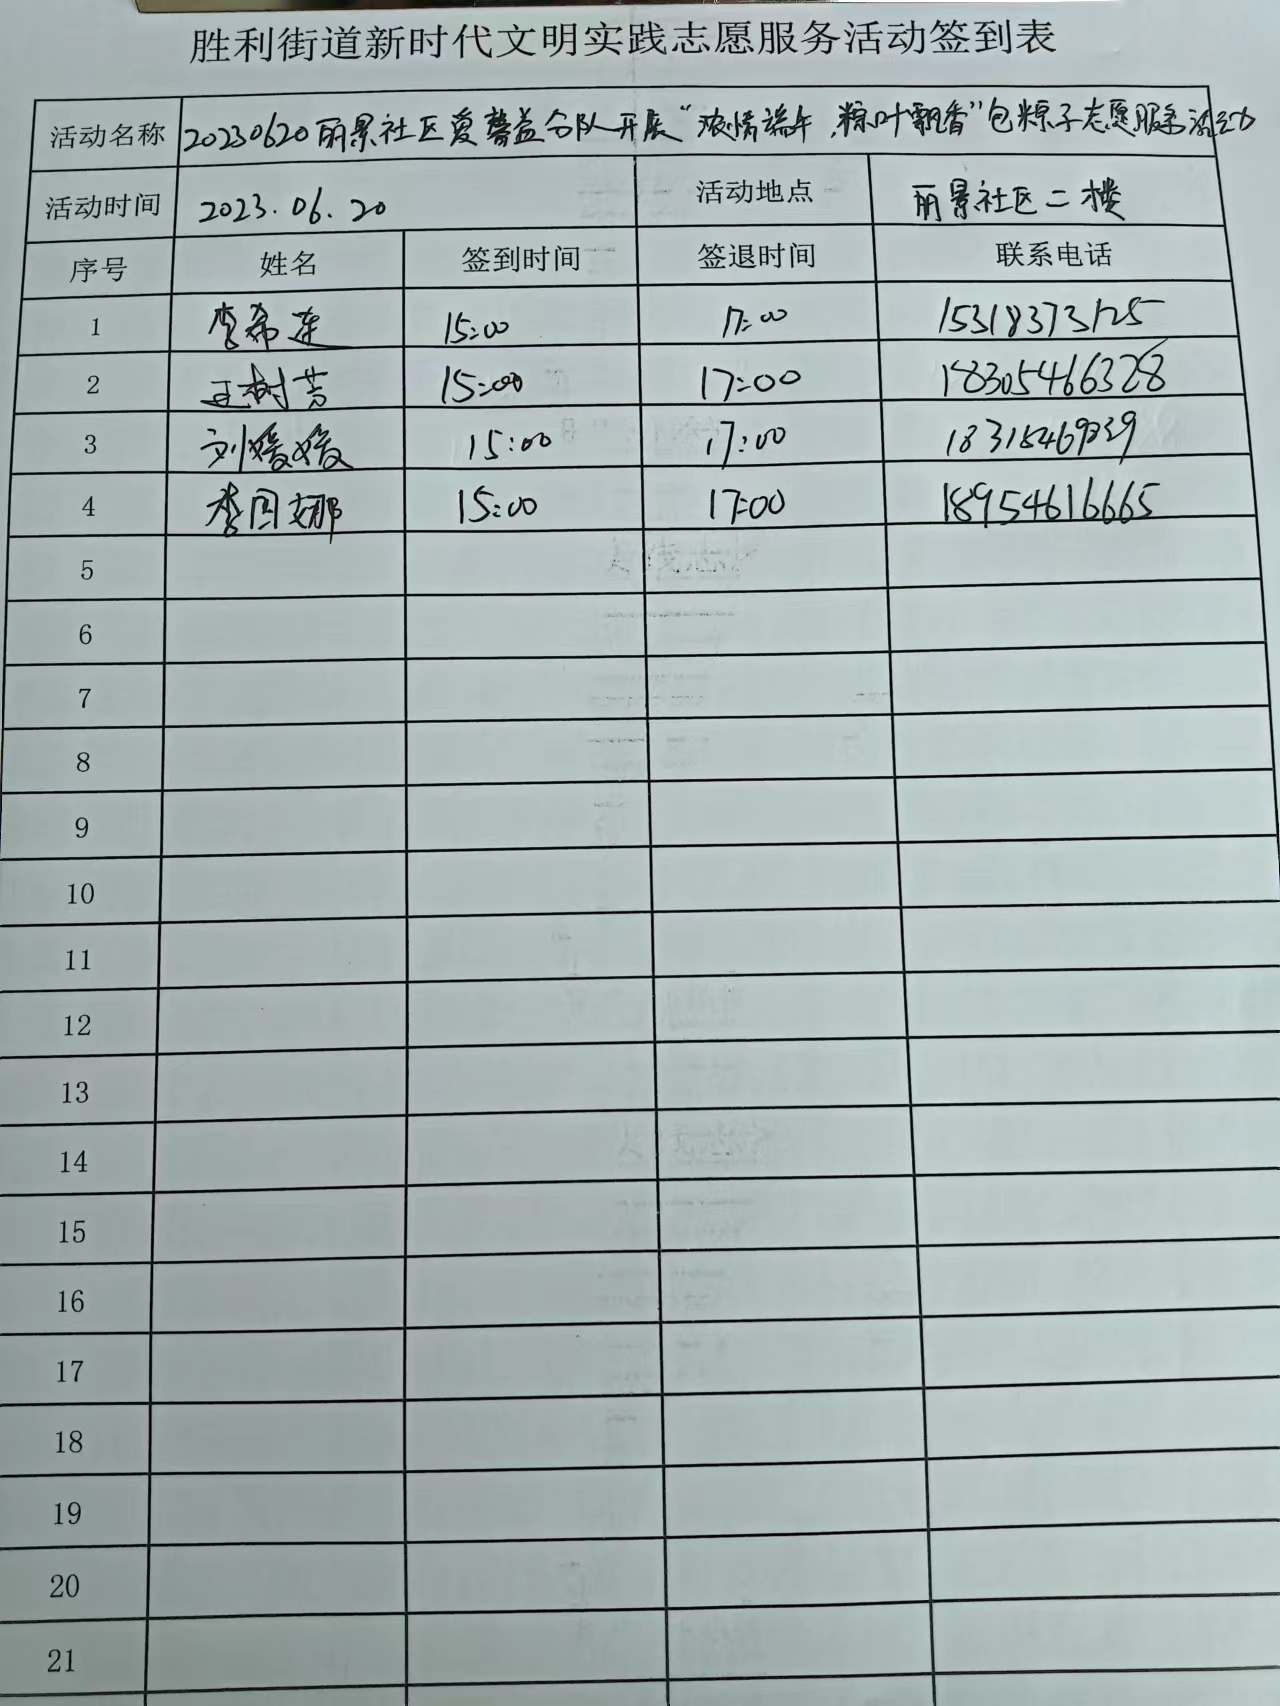 胜利街道新时代文明实践志愿服务活动签到表
活动名称 20230620丽景社区爱馨益分队开展“浓情端午,粽叶飘香”包粽子志愿服务活动
活动时间 2023.06.20 活动地点 丽景社区二楼
序号 姓名 签到时间 签退时间 联系电话
1 李希连 15:00 17:00 15318373125
2 王树芳 15:00 17:00 18305466328
3 刘媛媛 15:00 17:00
4 李国娜 15:00 17:00 18954616665
5
6
7
8
9
10
11
12
13
14
15
16
17
18
19
20
21